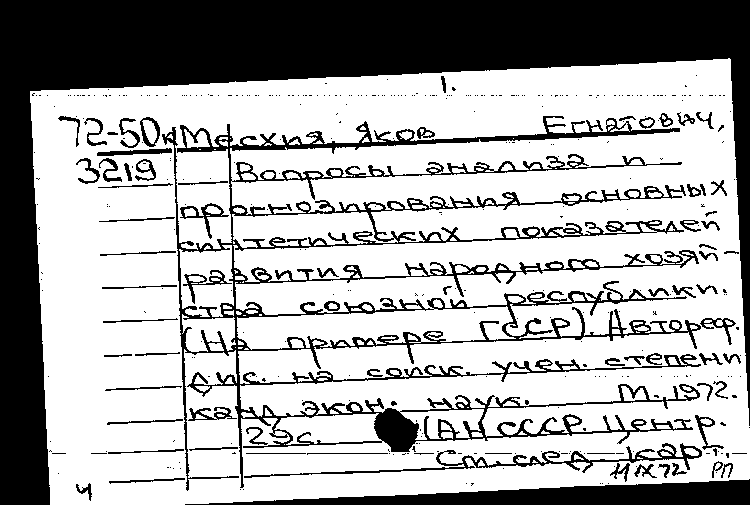 1.
72-50к Месхия, Яков Егнатович,
3219 Вопросы анализа и
прогнозирования основных
синтетических показателей
развития народного хозяй-
ства союзной республики.
(На примере ГССР). Автореф.
дис. на соиск. учен. степени
канд. экон. наук. М., 1972.
29с. (АН СССР. Центр.
См. след. карт.
11 IX 72 РП
4